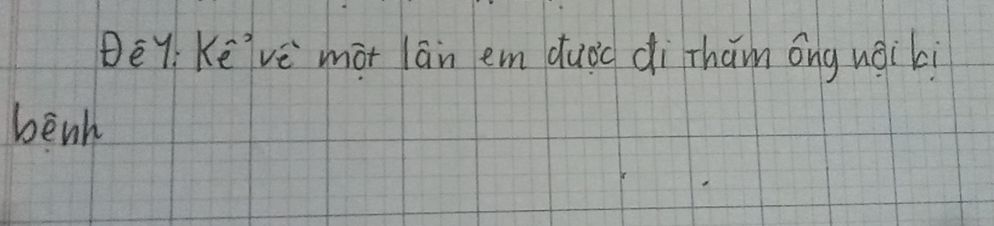 Đề 7: Kể về một lần em được đi thăm ông nội bị
bệnh